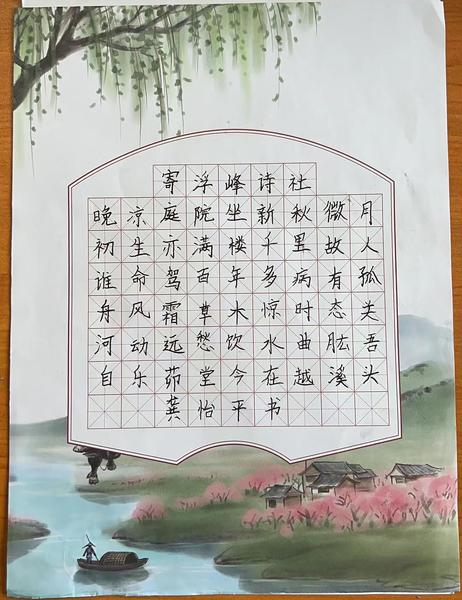 寄浮峰诗社
晚凉庭院坐新秋微月
初生亦满楼千里故人
谁命驾百年多病有孤
舟风霜草木惊时态关
河动远愁饮水曲肱吾
自乐茆堂今在越溪头
龚怡平书